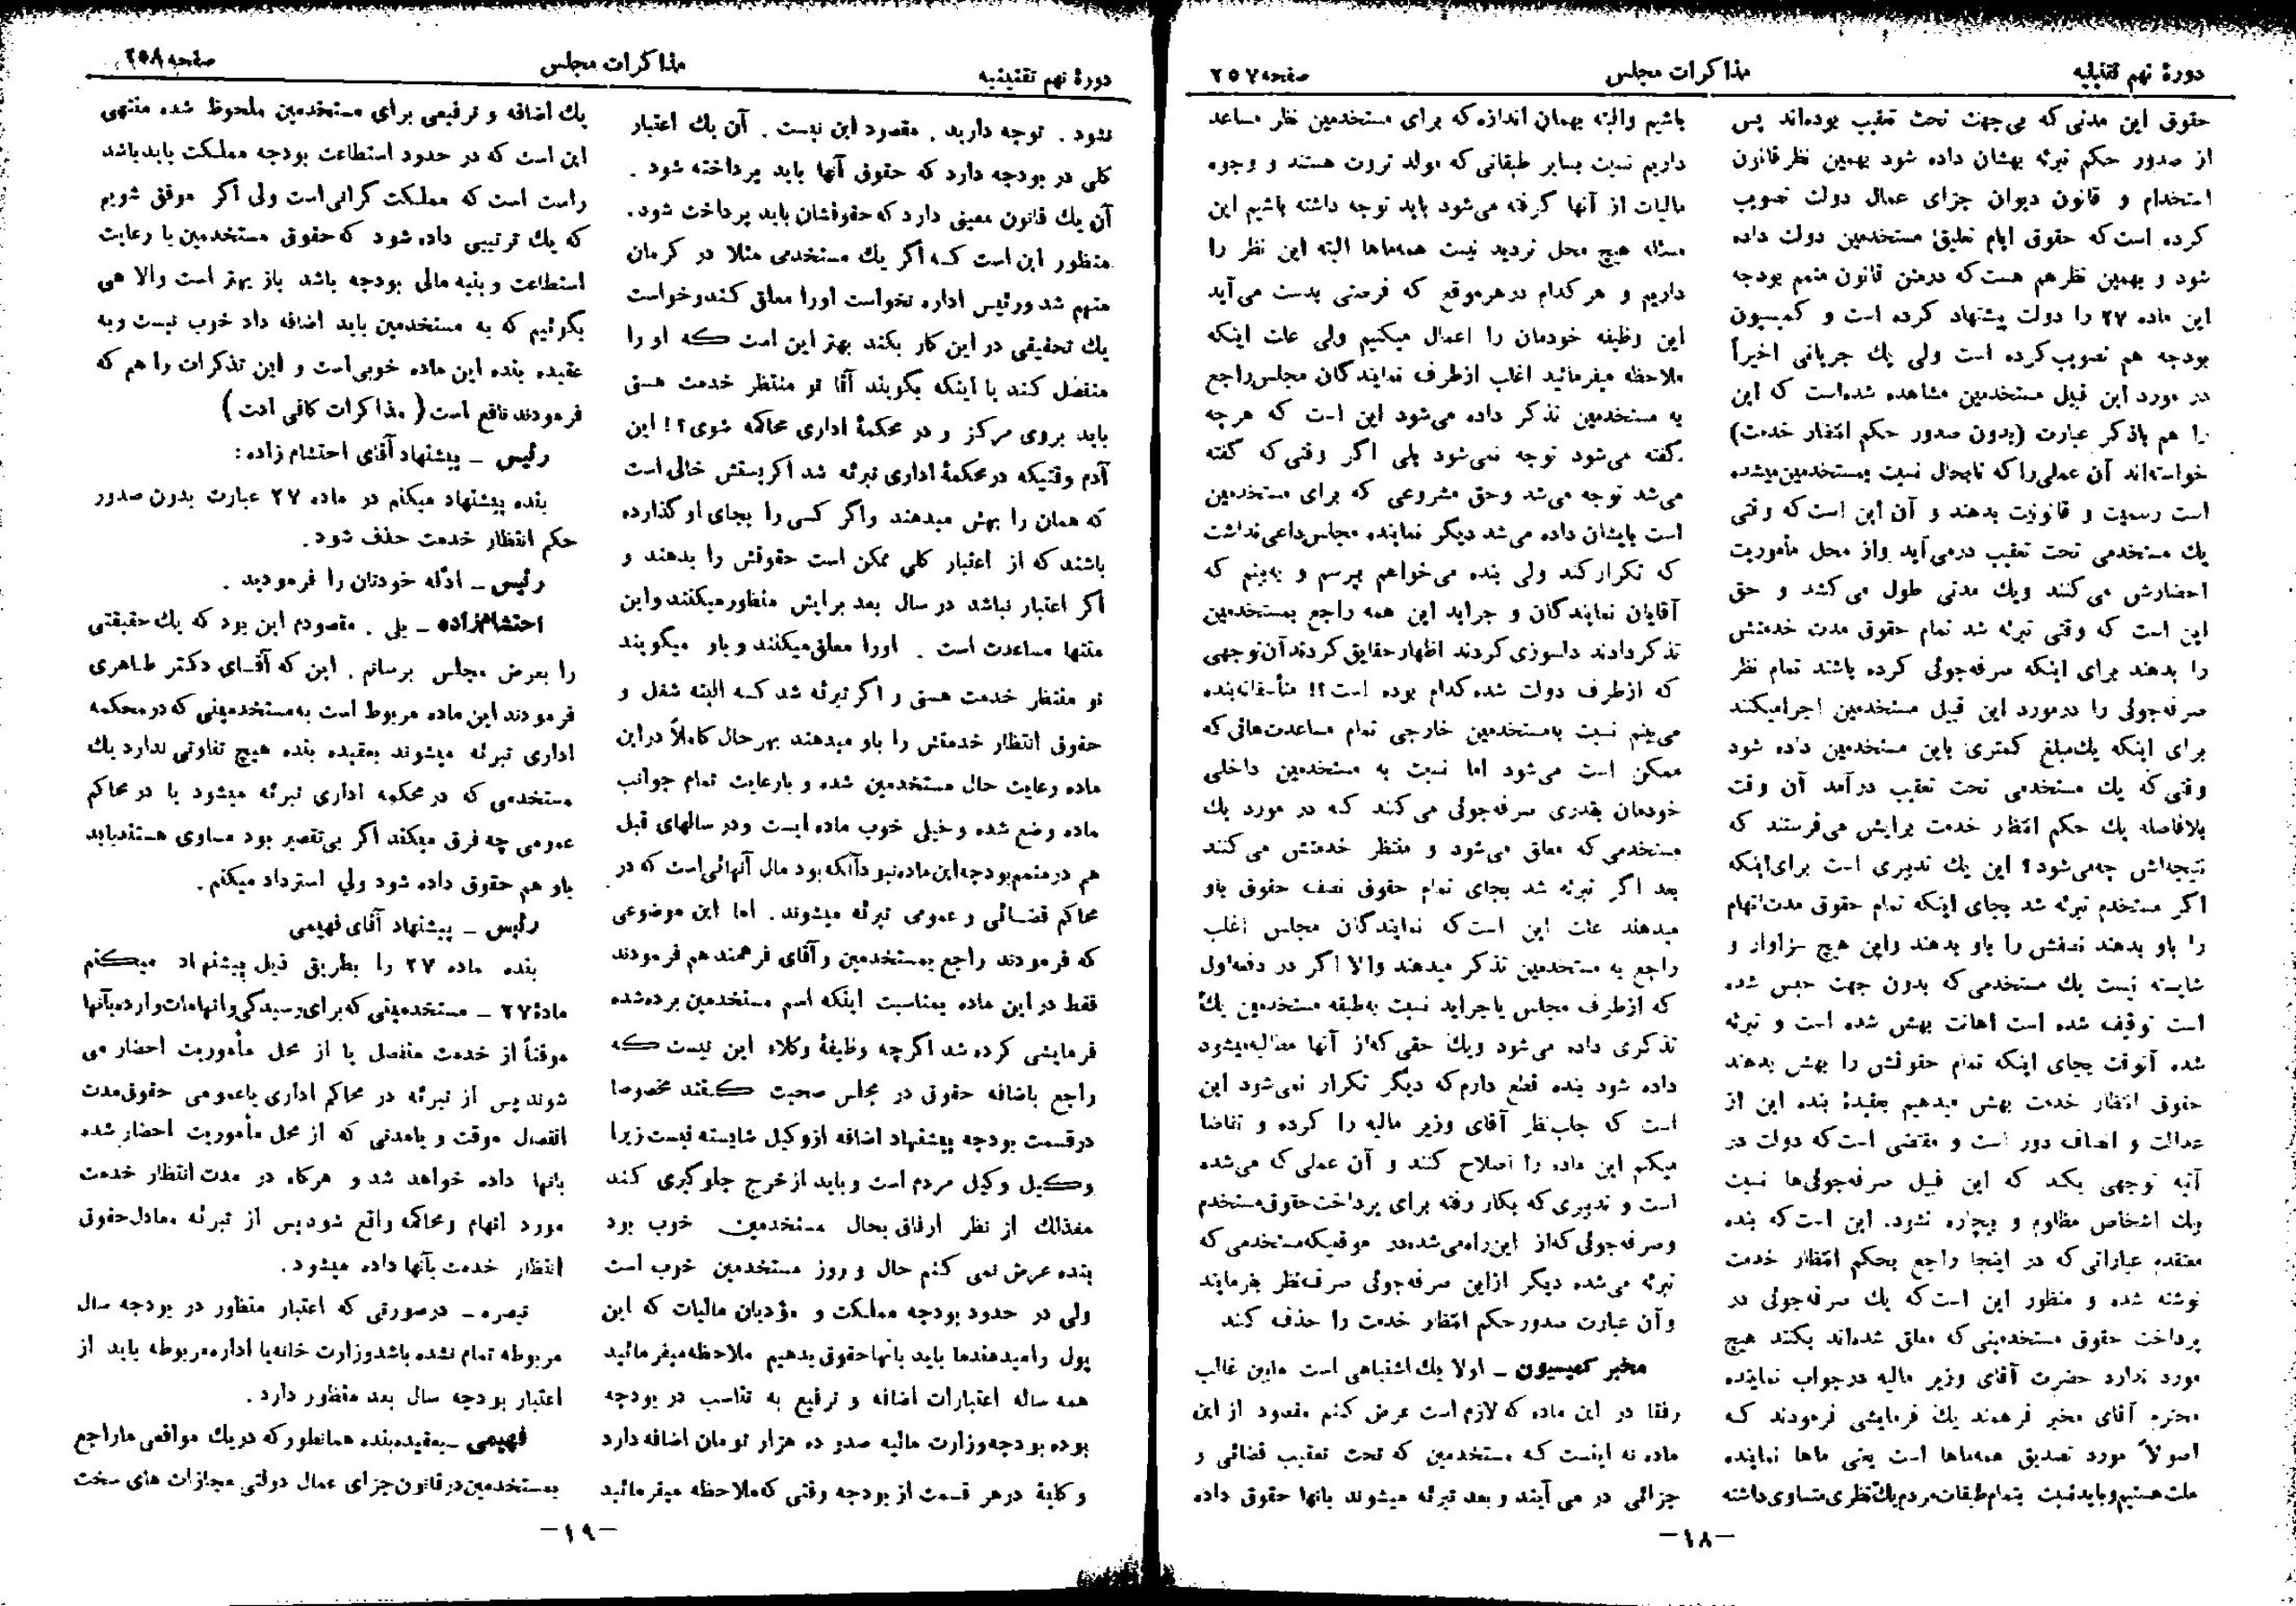 دورهٔ نهم تقنینیه
مذاکرات مجلس
صفحه ۲۵۷
حقوق این مدتی که بی‌جهت تحت تعقیب بوده‌اند پس
از صدور حکم تبرئه بهشان داده شود بهمین نظر قانون
استخدام و قانون دیوان جزای عمال دولت تصویب
کرده است که حقوق ایام تعلیق مستخدمین دولت داده
شود و بهمین نظر هم هست که در متن قانون متمم بودجه
این ماده ۲۷ را دولت پیشنهاد کرده است و کمیسیون
بودجه هم تصویب کرده است ولی یك جریانی اخیراً
در مورد این قبیل مستخدمین مشاهده شده‌است که این
را هم باذکر عبارت (بدون صدور حکم انتظار خدمت)
خواسته‌اند آن عملی را که تابحال نسبت بمستخدمین میشده
است رسمیت و قانونیت بدهند و آن این است که وقتی
یك مستخدمی تحت تعقیب درمی‌آید واز محل مأموریت
احضارش می‌کنند ویك مدتی طول می‌کشد و حق
این است که وقتی تبرئه شد تمام حقوق مدت خدمتش
را بدهند برای اینکه صرفه‌جوئی کرده باشند تمام نظر
صرفه‌جوئی را درمورد این قبیل مستخدمین اجرا میکنند
برای اینکه یك مبلغ کمتری باین مستخدمین داده شود
وقتی که یك مستخدمی تحت تعقیب درآمد آن وقت
بلافاصله یك حکم انتظار خدمت برایش می‌فرستند که
نتیجه‌اش چه‌می‌شود؟ این یك تدبیری است برای اینکه
اگر مستخدم تبرئه شد بجای اینکه تمام حقوق مدت اتهام
را باو بدهند نصفش را باو بدهند واین هیچ سزاوار و
شایسته نیست یك مستخدمی که بدون جهت حبس شده
است توقیف شده است اهانت بهش شده است و تبرئه
شده آنوقت بجای اینکه تمام حقوقش را بهش بدهند
حقوق انتظار خدمت بهش میدهیم بعقیدهٔ بنده این از
عدالت و انصاف دور است و مقتضی است که دولت در
آتیه توجهی بکند که این قبیل صرفه‌جوئی‌ها نسبت
بیك اشخاص مظلوم و بیچاره نشود. این است که بنده
معتقدم عباراتی که در اینجا راجع بحکم انتظار خدمت
نوشته شده و منظور این است که یك صرفه‌جوئی در
پرداخت حقوق مستخدمینی که معلق شده‌اند بکنند هیچ
مورد ندارد حضرت آقای وزیر مالیه در جواب نماینده
محترم آقای مخبر فرهمند یك فرمایشی فرمودند که
اصولاً مورد تصدیق همه‌ماها است یعنی ماها نماینده
ملت هستیم و باید نسبت بتمام طبقات مردم یك نظری متساوی داشته
باشیم والبته بهمان اندازه که برای مستخدمین نظر مساعد
داریم نسبت بسایر طبقاتی که مولد ثروت هستند و وجوه
مالیات از آنها گرفته می‌شود باید توجه داشته باشیم این
مسئله هیچ محل تردید نیست همه‌ماها البته این نظر را
داریم و هر کدام درهرموقع که فرصتی بدست می‌آید
این وظیفه خودمان را اعمال میکنیم ولی علت اینکه
ملاحظه میفرمائید اغلب ازطرف نمایندگان مجلس راجع
به مستخدمین تذکر داده می‌شود این است که هرچه
گفته می‌شود توجه نمی‌شود بلی اگر وقتی که گفته
می‌شد توجه می‌شد وحق مشروعی که برای مستخدمین
است بایشان داده می‌شد دیگر نماینده مجلس داعی نداشت
که تکرار کند ولی بنده می‌خواهم بپرسم و ببینم که
آقایان نمایندگان و جراید این همه راجع بمستخدمین
تذکر دادند دلسوزی کردند اظهار حقایق کردند آن توجهی
که ازطرف دولت شده کدام بوده است؟! متأسفانه‌بنده
می‌بینم نسبت به‌مستخدمین خارجی تمام مساعدت‌هائی که
ممکن است می‌شود اما نسبت به مستخدمین داخلی
خودمان بقدری صرفه‌جوئی می‌کنند که در مورد یك
مستخدمی که معلق می‌شود و منتظر خدمتش می‌کنند
بعد اگر تبرئه شد بجای تمام حقوق نصف حقوق باو
میدهند علت این است که نمایندگان مجلس اغلب
راجع به مستخدمین تذکر میدهند والا اگر در دفعه‌اول
که ازطرف مجلس یا جراید نسبت به‌طبقه مستخدمین یك
تذکری داده می‌شود ویك حقی که‌از آنها مطالبه‌میشود
داده شود بنده قطع دارم که دیگر تکرار نمی‌شود این
است که جلب‌نظر آقای وزیر مالیه را کرده و تقاضا
میکنم این ماده را اصلاح کنند و آن عملی که می‌شده
است و تدبیری که بکار رفته برای پرداخت حقوق مستخدم
و صرفه‌جوئی که‌از این‌راه می‌شده‌در موقعیکه مستخدمی که
تبرئه می‌شده دیگر ازاین صرفه‌جوئی صرف‌نظر بفرمایند
و آن عبارت صدور حکم انتظار خدمت را حذف کنند
مخبر کمیسیون ـ اولا یك اشتباهی است مابین غالب
رفقا در این ماده که لازم است عرض کنم مقصود از این
ماده نه اینست که مستخدمین که تحت تعقیب قضائی و
جزائی در می آیند و بعد تبرئه میشوند بانها حقوق داده
−۱۸−
دورهٔ نهم تقنینیه
مذاکرات مجلس
صفحه ۲۵۸
نشود . توجه دارید . مقصود این نیست . آن یك اعتبار
کلی در بودجه دارد که حقوق آنها باید پرداخته شود .
آن یك قانون معینی دارد که حقوقشان باید پرداخت شود.
منظور این است کـه اگر یك مستخدمی مثلا در کرمان
متهم شد ورئیس اداره نخواست اورا معلق کند وخواست
یك تحقیقی در این کار بکند بهتر این است که او را
منفصل کند یا اینکه بگویند آقا تو منتظر خدمت هستی
باید بروی مرکز و در محکمهٔ اداری محاکمه شوی؟! این
آدم وقتیکه در محکمهٔ اداری تبرئه شد اگر پستش خالی است
که همان را بهش میدهند واگر کسی را بجای او گذارده
باشند که از اعتبار کلی ممکن است حقوقش را بدهند و
اگر اعتبار نباشد در سال بعد برایش منظور میکنند واین
منتها مساعدت است . اورا معلق میکنند و باو میگویند
تو منتظر خدمت هستی و اگر تبرئه شد کـه البته شغل و
حقوق انتظار خدمتش را باو میدهند بهرحال کاملاً در این
ماده رعایت حال مستخدمین شده و بارعایت تمام جوانب
ماده وضع شده و خیلی خوب ماده ایست ودر سالهای قبل
هم در متمم بودجه این ماده نبود آنکه بود مال آنهائی است که در
محاکم قضـائی و عمومی تبرئه میشوند. اما این موضوعی
که فرمودند راجع بمستخدمین و آقای فرهمند هم فرمودند
فقط در این ماده بمناسبت اینکه اسم مستخدمین برده‌شده
فرمایشی کرده شد اگرچه وظیفهٔ وکلاء این نیست که
راجع باضافه حقوق در مجلس صحبت کنند مخصوصا
در قسمت بودجه پیشنهاد اضافه ازوکیل شایسته نیست زیرا
وکیل وکیل مردم است و باید از خرج جلوگیری کند
معذلك از نظر ارفاق بحال مستخدمین خوب بود
بنده عرض نمی کنم حال و روز مستخدمین خوب است
ولی در حدود بودجه مملکت و مؤدیان مالیات که این
پول را میدهند ما باید بانها حقوق بدهیم ملاحظه میفرمائید
همه ساله اعتبارات اضافه و ترفیع به تناسب در بودجه
بوده بودجه وزارت مالیه صدو ده هزار تومان اضافه دارد
و کلیهٔ در هر قسمت از بودجه وقتی که ملاحظه میفرمائید
یك اضافه و ترفیعی برای مستخدمین ملحوظ شده منتهی
این است که در حدود استطاعت بودجه مملکت باید باشد
راست است که مملکت گرانی است ولی اگر موفق شویم
که یك ترتیبی داده شود که حقوق مستخدمین با رعایت
استطاعت و بنیه مالی بودجه باشد باز بهتر است والا هی
بگوئیم که به مستخدمین باید اضافه داد خوب نیست وبه
عقیده بنده این ماده خوبی است و این تذکرات را هم که
فرمودند نافع است (مذاکرات کافی است)
رئیس ـ پیشنهاد آقای احتشام زاده:
بنده پیشنهاد میکنم در ماده ۲۷ عبارت بدون صدور
حکم انتظار خدمت حذف شود.
رئیس ـ ادله خودتان را فرمودید .
احتشام‌زاده ـ بلی . مقصودم این بود که یك حقیقتی
را بعرض مجلس برسانم . این که آقـای دکتر طـاهری
فرمودند این ماده مربوط است به مستخدمینی که در محکمه
اداری تبرئه میشوند بعقیده بنده هیچ تفاوتی ندارد یك
مستخدمی که در محکمه اداری تبرئه میشود یا در محاکم
عمومی چه فرق میکند اگر بی‌تقصیر بود مساوی هستند باید
باو هم حقوق داده شود ولی استرداد میکنم.
رئیس ـ پیشنهاد آقای فهیمی
بنده ماده ۲۷ را بطریق ذیل پیشنهاد میکنم
مادهٔ ۲۷ ـ مستخدمینی که برای رسیدگی واتهامات وارده بآنها
موقتاً از خدمت منفصل یا از محل مأموریت احضار می
شوند پس از تبرئه در محاکم اداری یا عمومی حقوق مدت
انفصال موقت و یا مدتی که از محل مأموریت احضار شده
بانها داده خواهد شد و هرگاه در مدت انتظار خدمت
مورد اتهام ومحاکمه واقع شود پس از تبرئه معادل حقوق
انتظار خدمت بآنها داده میشود.
تبصره ـ درصورتی که اعتبار منظور در بودجه سال
مربوطه تمام نشده باشد وزارت خانه یا اداره مربوطه باید از
اعتبار بودجه سال بعد منظور دارد .
فهیمی ـ بعقیده بنده همانطور که در یك مواقعی ما راجع
بمستخدمین در قانون جزای عمال دولتی مجازات های سخت
−۱۹−